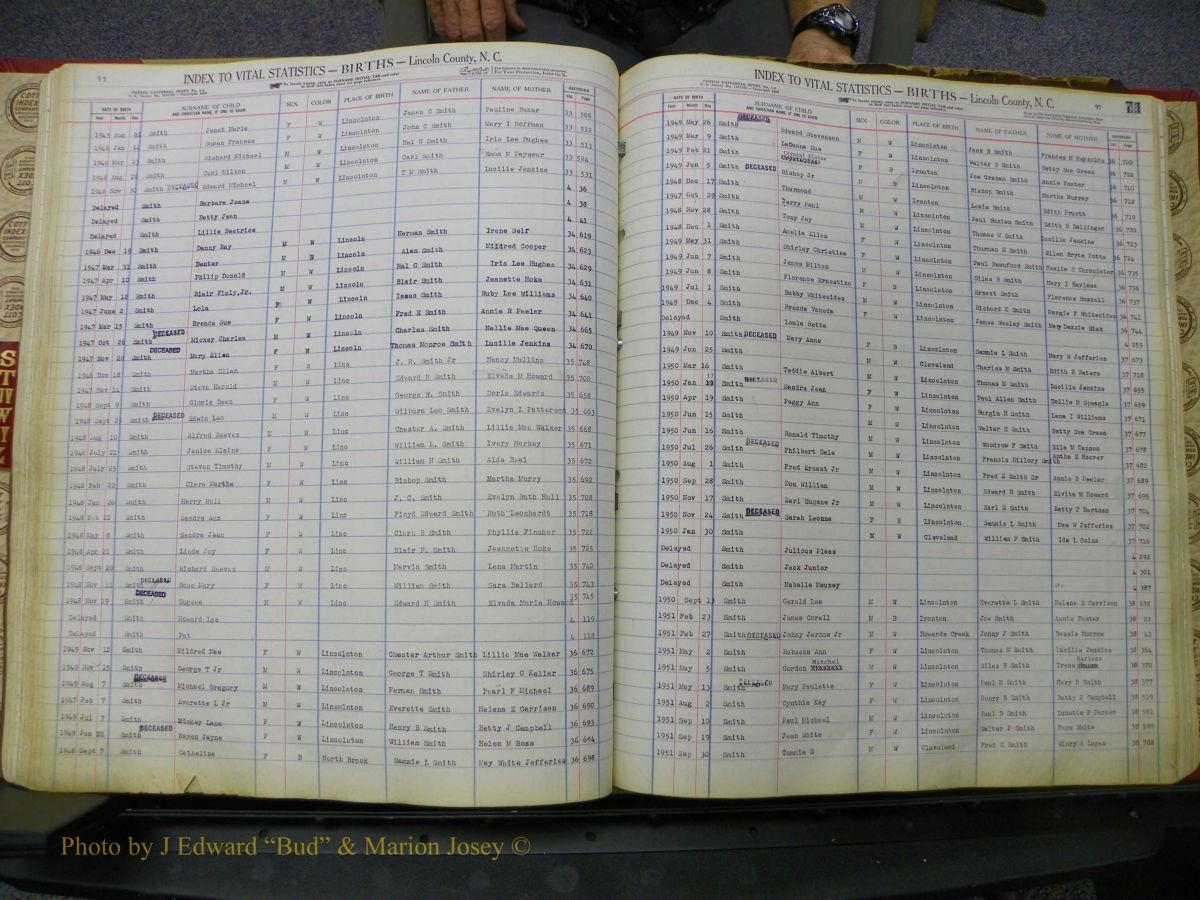 95
INDEX TO VITAL STATISTICS — BIRTHS — Lincoln County, N. C.
DATE OF BIRTH SURNAME OF CHILD SEX COLOR PLACE OF BIRTH NAME OF FATHER NAME OF MOTHER RECORDED
Year Month Day AND CHRISTIAN NAME, IF ONE IS GIVEN Vol. Page
Smith Janet Marie F W Lincolnton James C Smith Pauline Baker 33 506
1946 Jan Smith Susan Frances F W Lincolnton John C Smith Mary I Hoffman 33 512
1946 Mar 23 Smith Richard Michael M W Lincolnton Hal G Smith Iris Lee Hughes 33 513
1946 Aug Smith Carl Milton M W Lincolnton Carl Smith Emma M Payseur 33 524
1946 Nov 30 Smith DECEASED Edward Michael M W Lincolnton T M Smith Lucille Jenkins 33 531
Delayed Smith Barbara Jeane 4 36
Delayed Smith Betty Jean 4 38
Delayed Smith Lillie Beatrice 4 41
1946 Dec 19 Smith Danny Ray M W Lincoln Herman Smith Irene Self 34 619
1947 Mar 31 Smith M B Lincoln Alen Smith Mildred Cooper 34 623
1947 Apr 10 Smith Philip Donald M W Lincoln Hal G Smith Iris Lee Hughes 34 629
1947 May 12 Smith Blair Finly, Jr. M W Lincoln Blair Smith Jeanette Hoke 34 631
1947 June 2 Smith Lola F W Lincoln Isaac Smith Ruby Lee Williams 34 640
1947 Mar 15 Smith Brenda Sue F W Lincoln Fred X Smith Annie R Feeler 34 641
1947 Oct 26 Smith DECEASED Mickey Charles M W Lincoln Charles Smith Nellie Mae Queen 34 665
1947 Nov 28 Smith DECEASED Mary Ellen F W Lincoln Thomas Monroe Smith Lucille Jenkins 34 670
Nov 18 Smith Martha Ellen F W Linc J. R. Smith Jr Nancy Mullins 35 748
Nov 14 Smith Steve Harold M W Linc Edward H Smith Elvada M Howard 35 700
1948 Sept 9 Smith Gloria Dean F W Linc George W. Smith Doris Edwards 35 658
1948 Sept 25 Smith DECEASED Edwin Leo M W Linc Wilburn Leo Smith Evelyn L Patterson 35 663
1948 Aug 10 Smith Alfred Reeves M W Linc Chester A. Smith Lillie Mae Walker 35 668
1948 July 21 Smith Janice Elaine F W Linc William L. Smith Ivory Herkey 35 671
1948 July 25 Smith Steven Timothy M W Linc William H Smith Alda Beal 35 672
1948 Feb 22 Smith Clara Martha F W Linc Bishop Smith Martha Murry 35 692
1948 Jan 26 Smith Harry Hull M W Linc J. C. Smith Evelyn Ruth Hull 35 708
1948 Feb 22 Smith Sandra Ann F W Linc Floyd Edward Smith Ruth Leonhardt 35 718
1948 May 8 Smith Sandra Jean F W Linc Clark B Smith Phyllis Fincher 35 722
1948 Apr 21 Smith Linda Joy F W Linc Blair F. Smith Jeannette Hoke 35 725
1948 Sept 10 Smith Richard Reeves M W Linc Marvin Smith Lena Martin 35 740
1948 Nov 11 Smith DECEASED Rose Mary F W Linc William Smith Sara Ballard 35 743
1948 Nov 19 Smith DECEASED Eugene M W Linc Edward H Smith Elvada Marie Howard 35 745
Delayed Smith Howard Lee 4 119
Delayed Smith Pat 4 118
1949 Nov 12 Smith Mildred Mae F W Lincolnton Chester Arthur Smith Lillie Mae Walker 36 672
1949 Nov 15 Smith George T Jr M W Lincolnton George T Smith Shirley G Keller 36 675
1949 Aug 7 Smith DECEASED Michael Gregory M W Lincolnton Ferman Smith Pearl F Michael 36 689
1949 Feb 7 Smith Everette L Jr M W Lincolnton Everette Smith Helene E Garrison 36 690
1949 Jul 7 Smith Mickey Lane F W Lincolnton Henry B Smith Betty J Campbell 36 693
1949 Jun Smith DECEASED Karen Jayne F W Lincolnton William Smith Helen M Ross 36 694
1948 Sept 7 Smith Catheline F B North Brook Sammie L Smith May White Jefferies 36 698
INDEX TO VITAL STATISTICS — BIRTHS — Lincoln County, N. C.
95
DATE OF BIRTH SURNAME OF CHILD SEX COLOR PLACE OF BIRTH NAME OF FATHER NAME OF MOTHER RECORDED
Year Month Day AND CHRISTIAN NAME, IF ONE IS GIVEN Vol. Page
1949 May 26 Smith DECEASED Edward Stevenson M W Lincolnton Jack N Smith Frances M Reynolds 36 700
1949 Mar 9 Smith LaDonna Sue F W Lincolnton Walter E Smith Betty Sue Green 36 702
1949 Feb 21 Smith Crystal Elaine F B Ironton Joe Graham Smith Annie Foster 36 710
1949 Jun 5 Smith DECEASED Bishop Jr M B Lincolnton Bishop Smith Martha Murray 36 712
1948 Dec 17 Smith Thurmond M W Ironton Lewis Smith Edith Pruett 36 718
1947 Oct 29 Smith Terry Paul M W Lincolnton Paul Smith Edith N Bellinger 36 720
1948 Nov 28 Smith Tony Jay M W Lincolnton Thomas M Smith Lucille Jenkins 36 723
1948 Dec 1 Smith Amelia Ellen F W Lincolnton Thurman E Smith Ellen Bryte Potts 36 724
1949 May 31 Smith Shirley Christine F W Lincolnton Paul Beauford Smith Maxlie C Chronister 36 735
1949 Jun 7 Smith James Milton M W Lincolnton Silas B Smith Mary I Harless 36 736
1949 Jun 8 Smith Florence Ernestine F B Lincolnton Ernest Smith Florence Hoszell 36 737
1949 Jul 1 Smith Bobby Whitesides M W Lincolnton Richard K Smith Margie F Whitesides 36 741
1949 Dec 4 Smith Brenda Yahoda F W Lincolnton James Wesley Smith Mary Dennis Sisk 36 744
Delayed Smith Louis Retta 4 253
1949 Nov 10 Smith DECEASED Mary Anne F B Lincolnton Sammie L Smith Mary W Jefferies 37 673
1949 Jun 25 Smith F W Cleveland Charles M Smith Edith R Waters 37 718
1950 Mar 16 Smith Teddie Albert M W Lincolnton Thomas M Smith Lucille Jenkins 37 655
1950 Jan Smith DECEASED Sandra Jean F W Lincolnton Paul Allen Smith Dollie M Spangle 37 659
1950 Apr 19 Smith Peggy Ann F W Lincolnton Burgin H Smith Lena I Williams 37 671
1950 Jun 15 Smith M W Lincolnton Walter E Smith Betty Sue Green 37 677
1950 Jun 16 Smith Ronald Timothy M W Lincolnton Woodrow F Smith Ella M Cannon 37 678
1950 Jul 26 Smith DECEASED Philbert Dale M W Lincolnton Francis Hillory Smith Antha E Hoover 37 682
1950 Aug 1 Smith Fred Ernest Jr M W Lincolnton Fred E Smith Sr Annie B Peeler 37 689
1950 Sep 28 Smith Don William M W Lincolnton Edward H Smith Elvita M Howard 37 695
1950 Nov 17 Smith Earl Eugene Jr M W Lincolnton Earl E Smith Betty J Hartman 37 704
1950 Nov 24 Smith DECEASED Sarah Leonne F B Lincolnton Sammie L Smith Mae W Jefferies 37 702
1950 Jan 30 Smith M W Cleveland William F Smith Ida L Goins 37 716
Delayed Smith Julious Pleas 4 292
Delayed Smith Jack Junior 4 301
Delayed Smith Mabelle Mauney 4 387
1950 Sept 13 Smith Gerald Lee M W Lincolnton Everette L Smith Helene E Garrison 38 192
1951 Feb 23 Smith James Corell M B Ironton Joe Smith Annie Foster 38 23
1951 Feb 27 Smith DECEASED Johny Jerone Jr M W Howards Creek Johny J Smith Bessie Morrow 38 43
1951 May 2 Smith Rebecca Ann F W Lincolnton Thomas M Smith Lucille Jenkins 38 364
1951 May 5 Smith Gordon Mitchel M W Lincolnton Silas B Smith Irene Harless 38 370
1951 May 13 Smith DECEASED Mary Paulette F W Lincolnton Paul H Smith Mary B Smith 38 377
1951 Aug 2 Smith Cynthia Kay F W Lincolnton Henry B Smith Betty J Campbell 38 519
1951 Sep 10 Smith Paul Michael M W Lincolnton Paul D Smith Lunette P Carter 38 581
1951 Sep 19 Smith Jean White F W Lincolnton Walter P Smith Faye White 38 599
1951 Sep 30 Smith Tommie E M W Cleveland Fred E Smith Vicry A Logan 38 788
Photo by J Edward “Bud” & Marion Josey ©